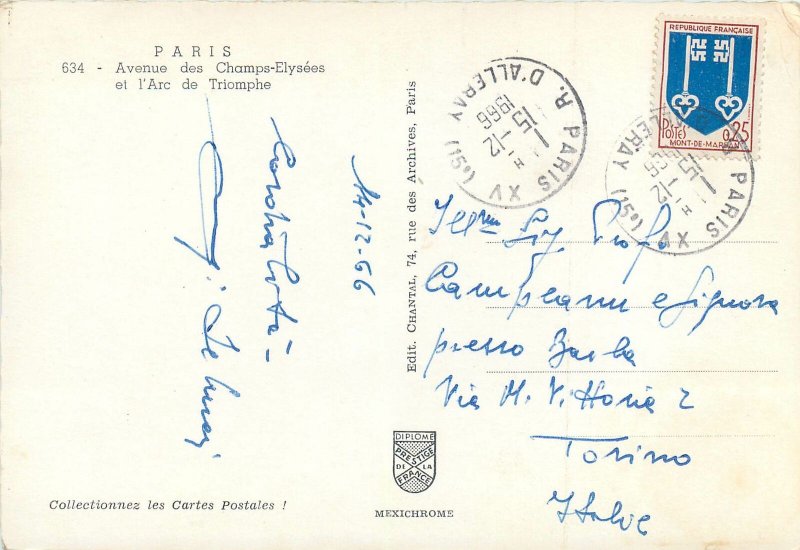 PARIS
634 - Avenue des Champs-Elysées
et l'Arc de Triomphe
Cordialità
14-12-66
Edit. CHANTAL, 74, rue des Archives, Paris
REPUBLIQUE FRANÇAISE
POSTES 0,25
MONT-DE-MARSAN
PARIS XV R. D'ALLERAY (15e)
15 H
1-12
1966
PARIS XV
ALLERAY (15e)
Ill.mi Sig Prof.
Campeanu e Signora
presso Barba
Via M. Vittoria 2
Torino
Italie
DIPLOME
PRESTIGE
DE LA
FRANCE
MEXICHROME
Collectionnez les Cartes Postales !